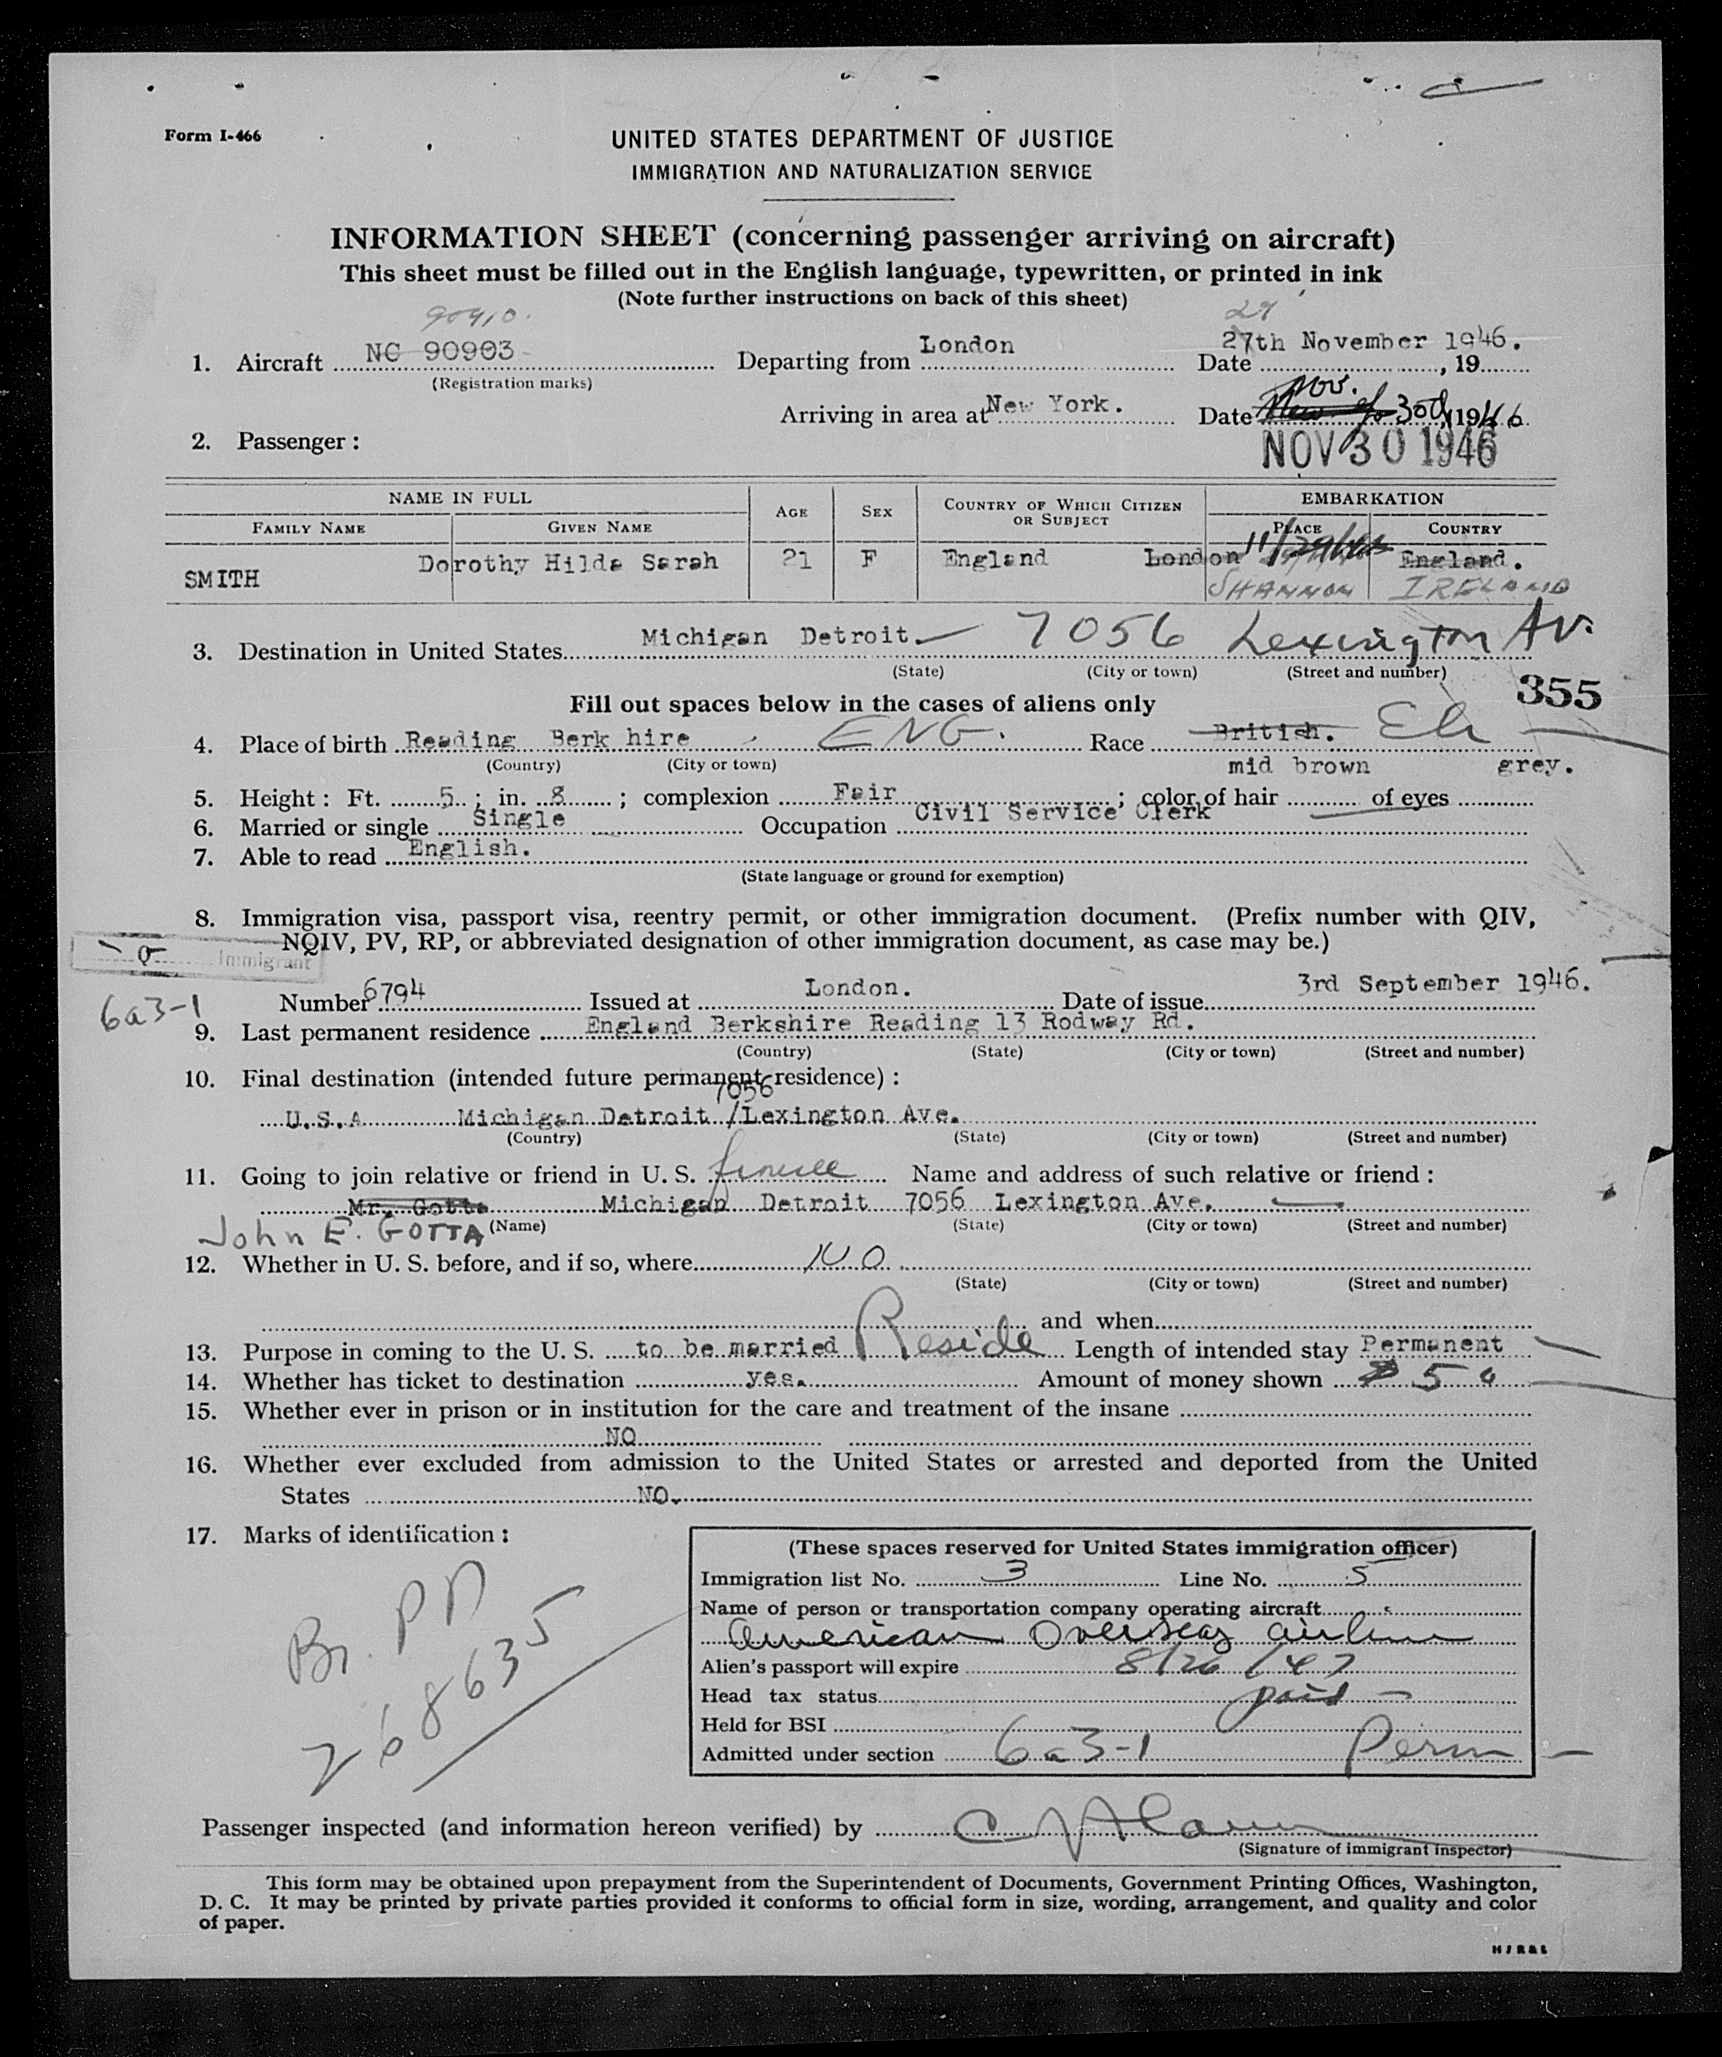 Form I-466
UNITED STATES DEPARTMENT OF JUSTICE
IMMIGRATION AND NATURALIZATION SERVICE
INFORMATION SHEET (concerning passenger arriving on aircraft)
This sheet must be filled out in the English language, typewritten, or printed in ink
(Note further instructions on back of this sheet)
90910.
29
1. Aircraft NC 90903 Departing from London Date 27th November 1946. , 19
(Registration marks)
Nov.
Arriving in area at New York. Date 30th, 1946
NOV 30 1946
2. Passenger :
NAME IN FULL AGE SEX COUNTRY OF WHICH CITIZEN OR SUBJECT EMBARKATION
FAMILY NAME GIVEN NAME PLACE COUNTRY
SMITH Dorothy Hilda Sarah 21 F England London 11/29/46 England.
SHANNON IRELAND
3. Destination in United States Michigan Detroit. 7056 Lexington Av.
(State) (City or town) (Street and number)
355
Fill out spaces below in the cases of aliens only
4. Place of birth Reading Berk hire ENG. Race British.
(Country) (City or town)
mid brown grey.
5. Height : Ft. 5 ; in. 8 ; complexion Fair ; color of hair of eyes
6. Married or single Single Occupation Civil Service Clerk
7. Able to read English.
(State language or ground for exemption)
8. Immigration visa, passport visa, reentry permit, or other immigration document. (Prefix number with QIV,
NQIV, PV, RP, or abbreviated designation of other immigration document, as case may be.)
Immigrant
6a3-1
Number 6794 Issued at London. Date of issue 3rd September 1946.
9. Last permanent residence England Berkshire Reading 13 Rodway Rd.
(Country) (State) (City or town) (Street and number)
10. Final destination (intended future permanent residence) :
7056
U.S.A Michigan Detroit /Lexington Ave.
(Country) (State) (City or town) (Street and number)
11. Going to join relative or friend in U. S. Name and address of such relative or friend :
Mr. Gotta Michigan Detroit 7056 Lexington Ave.
John E. GOTTA (Name) (State) (City or town) (Street and number)
12. Whether in U. S. before, and if so, where NO
(State) (City or town) (Street and number)
and when
13. Purpose in coming to the U. S. to be married Reside Length of intended stay Permanent
14. Whether has ticket to destination yes. Amount of money shown $ 50
15. Whether ever in prison or in institution for the care and treatment of the insane
NO
16. Whether ever excluded from admission to the United States or arrested and deported from the United
States NO.
17. Marks of identification :
Br. PP
268635
(These spaces reserved for United States immigration officer)
Immigration list No. 3 Line No. 5
Name of person or transportation company operating aircraft
American Overseas airline
Alien's passport will expire 8/26/47
Head tax status paid -
Held for BSI
Admitted under section 6a3-1 Perm -
Passenger inspected (and information hereon verified) by
(Signature of immigrant inspector)
This form may be obtained upon prepayment from the Superintendent of Documents, Government Printing Offices, Washington,
D. C. It may be printed by private parties provided it conforms to official form in size, wording, arrangement, and quality and color
of paper.